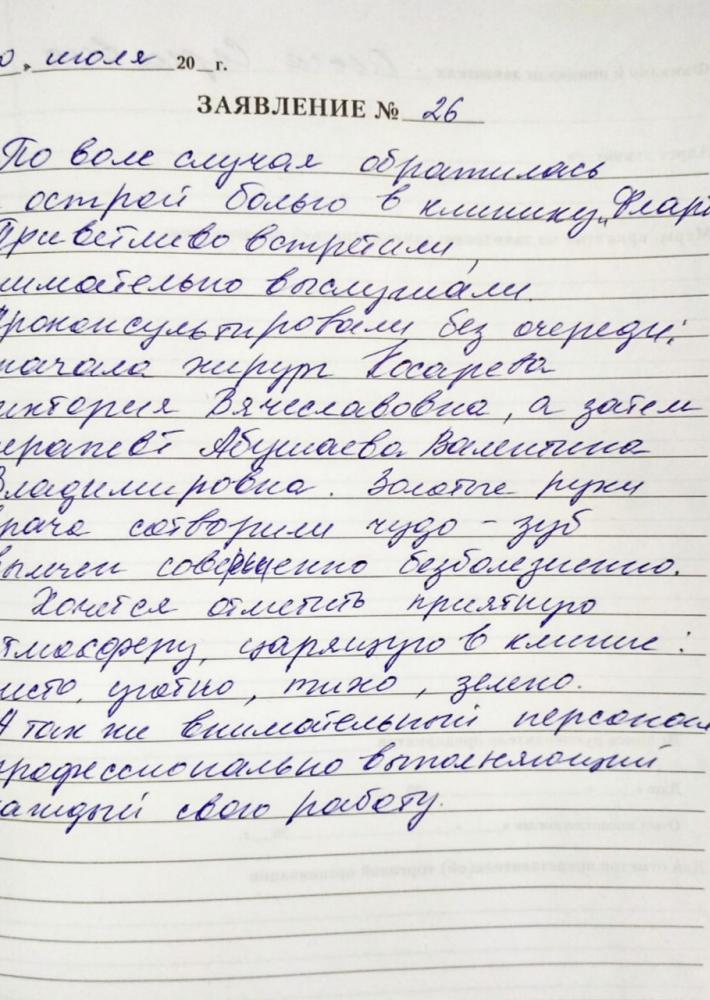 июля 20 г.
ЗАЯВЛЕНИЕ № 26
По воле случая обратилась
острой болью в клинику „
Приветливо встретили,
нимательно выслушали.
Проконсультировали без очереди:
начала хирург Косарева
иктория Вячеславовна, а затем
ерапевт Абушаева Валентина
Владимировна. Золотые руки
врача сотворили чудо – зуб
вылечен совершенно безболезненно.
Хочется отметить приятную
тмосферу, царящую в клинике:
исто, уютно, тихо, зелено.
А так же внимательный персонал
профессионально выполняющий
аждый свою работу.